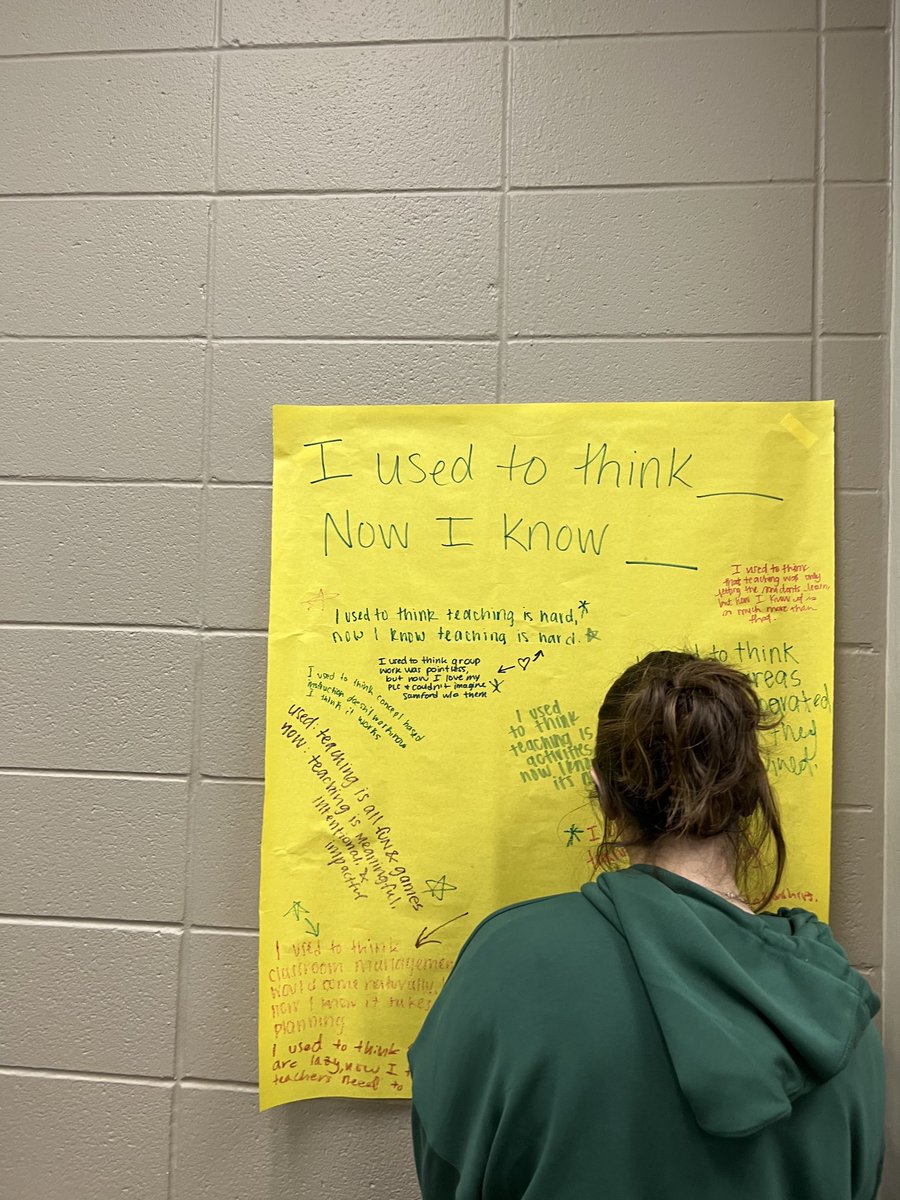 I used to think __
Now I know __
I used to think
that teaching was only
getting the students learn,
but now I know it is
so much more than
that.
I used to think teaching is hard,
now I know teaching is hard.
I used to think group
work was pointless,
but now I love my
PLC & couldn't imagine
Samford w/o them
I used to think concept based
instruction doesn't work now
I think it works
to think
areas
used: teaching is all fun & games
now: teaching is meaningful,
intentional, &
impactful
I used
to think
teaching is
activities
now I
it's
they
I
I used to think
classroom management
would come naturally,
now I know it takes
planning
I used to think
are lazy, now I
teachers need to